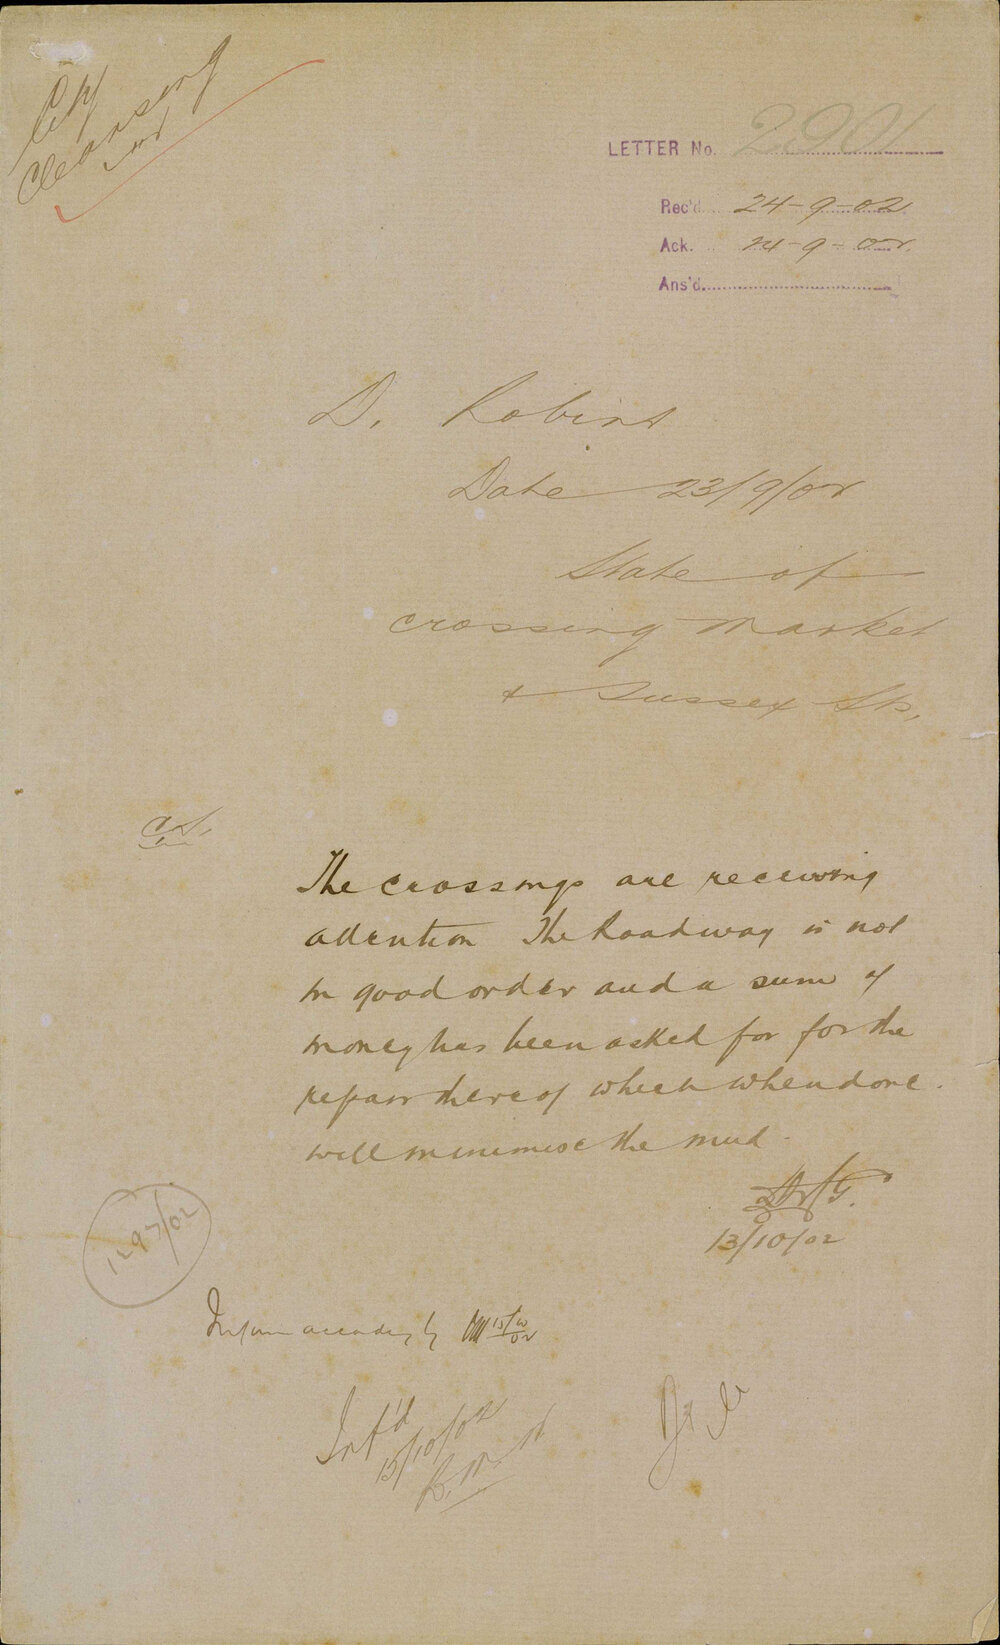 City
Cleansing
LETTER No. 2901
Rec'd 24-9-02
Ack. 24-9-02.
Ans'd.
D. Robins
Date 23/9/02
State of
crossing Market
& Sussex Sts.
C.S.
The crossings are receiving
attention The Roadway is not
in good order and a sum of
money has been asked for for the
repair thereof which when done
will minimise the mud.
13/10/02
1297/02
Inform accordingly 15/10/02
Inf'd
15/10/02